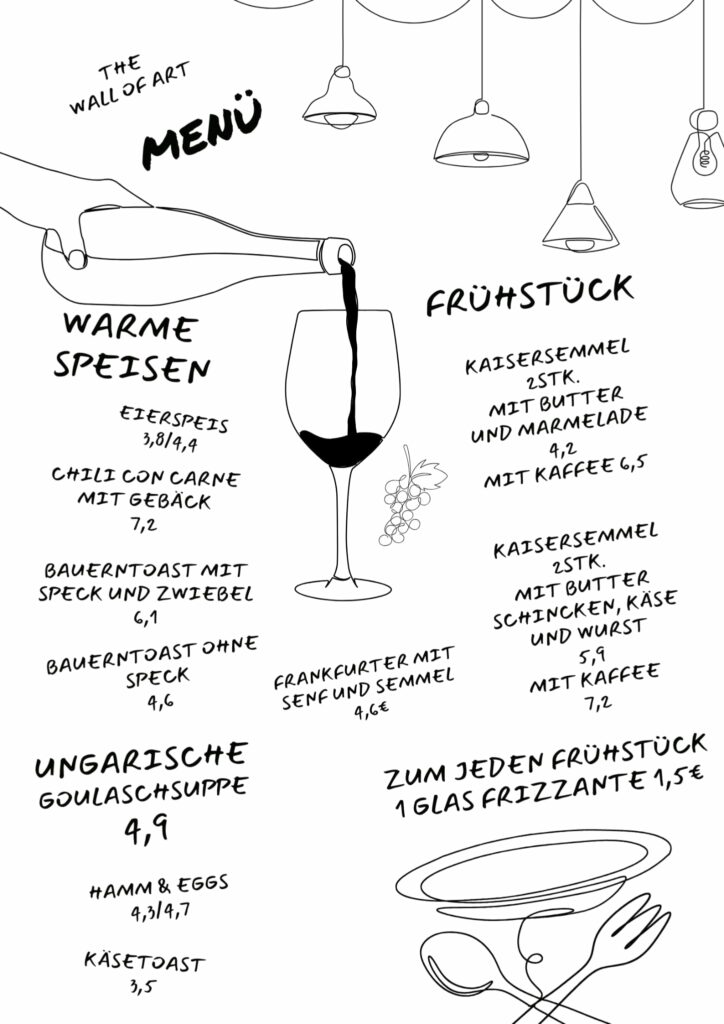 THE
WALL OF ART
MENÜ
WARME
SPEISEN
EIERSPEIS
3,8/4,4
CHILI CON CARNE
MIT GEBÄCK
7,2
BAUERNTOAST MIT
SPECK UND ZWIEBEL
6,1
BAUERNTOAST OHNE
SPECK
4,6
UNGARISCHE
GOULASCHSUPPE
4,9
HAMM & EGGS
4,3/4,7
KÄSETOAST
3,5
FRANKFURTER MIT
SENF UND SEMMEL
4,6€
FRÜHSTÜCK
KAISERSEMMEL
2STK.
MIT BUTTER
UND MARMELADE
4,2
MIT KAFFEE 6,5
KAISERSEMMEL
2STK.
MIT BUTTER
SCHINCKEN, KÄSE
UND WURST
5,9
MIT KAFFEE
7,2
ZUM JEDEN FRÜHSTÜCK
1 GLAS FRIZZANTE 1,5€